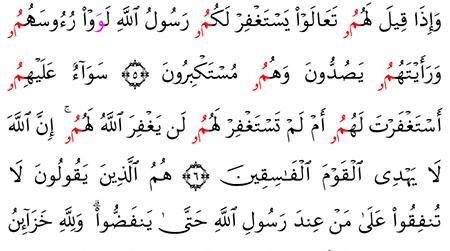 وَإِذَا قِيلَ لَهُمُۥ تَعَالَوْا۟ يَسْتَغْفِرْ لَكُمُۥ رَسُولُ ٱللَّهِ لَوَوْا۟ رُءُوسَهُمُۥ
وَرَأَيْتَهُمُۥ يَصُدُّونَ وَهُمُۥ مُسْتَكْبِرُونَ ۝٥ سَوَآءٌ عَلَيْهِمُۥ
أَسْتَغْفَرْتَ لَهُمُۥ أَمْ لَمْ تَسْتَغْفِرْ لَهُمُۥ لَن يَغْفِرَ ٱللَّهُ لَهُمُۥ ۚ إِنَّ ٱللَّهَ
لَا يَهْدِى ٱلْقَوْمَ ٱلْفَـٰسِقِينَ ۝٦ هُمُ ٱلَّذِينَ يَقُولُونَ لَا
تُنفِقُوا۟ عَلَىٰ مَنْ عِندَ رَسُولِ ٱللَّهِ حَتَّىٰ يَنفَضُّوا۟ ۗ وَلِلَّهِ خَزَآئِنُ